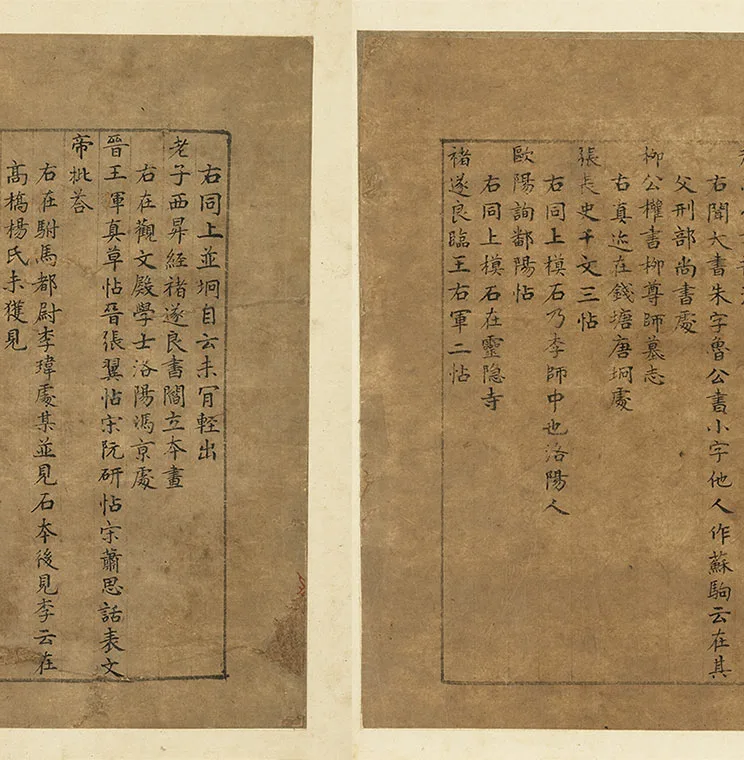 右聞大書朱字魯公書小字他人作蘇駒云在其
父刑部尚書處
柳公權書柳尊師墓志
右真迹在錢塘唐坰處
張長史千文三帖
右同上模石乃李師中也洛陽人
歐陽詢鄱陽帖
右同上模石在靈隐寺
褚遂良臨王右軍二帖
右同上並坰自云未肎輕出
老子西昇經褚遂良書閻立夲畫
右在觀文殿學士洛陽馮京處
晉王軍真草帖晉張翼帖宋阮研帖宋蕭思話表文
帝批荅
右在駙馬都尉李瑋處某並見石夲後見李云在
髙橋楊氏未獲見